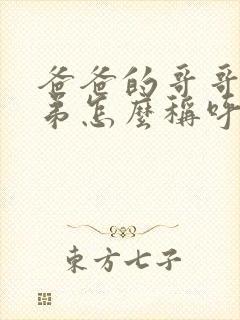 爸爸的哥哥
弟怎麼稱呼
東方七子